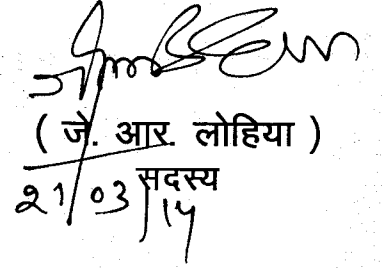 ( जे. आर. लोहिया )
सदस्य
21/03/14